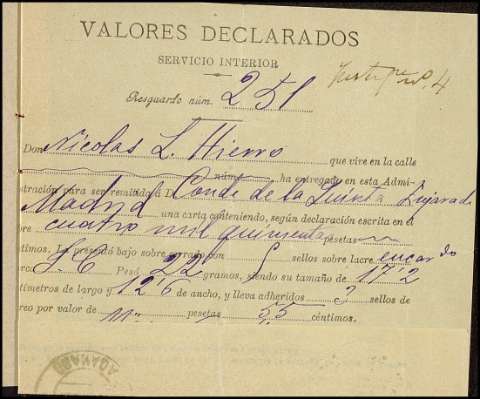 VALORES DECLARADOS
SERVICIO INTERIOR
Resguardo núm. 251
Don Nicolas L. Hierro que vive en la calle
núm. ha entregado en esta Admi-
stración para ser remitida á Conde de la
Madrid una carta conteniendo, según declaración escrita en el
bre cuatro mil quinientas pesetas
timos. La presentó bajo sobre cerrado con 5 sellos sobre lacre encarnado
Pesó 22 gramos, siendo su tamaño de 17'2
tímetros de largo y 12'6 de ancho, y lleva adheridos 3 sellos de
reo por valor de pesetas 55 céntimos.